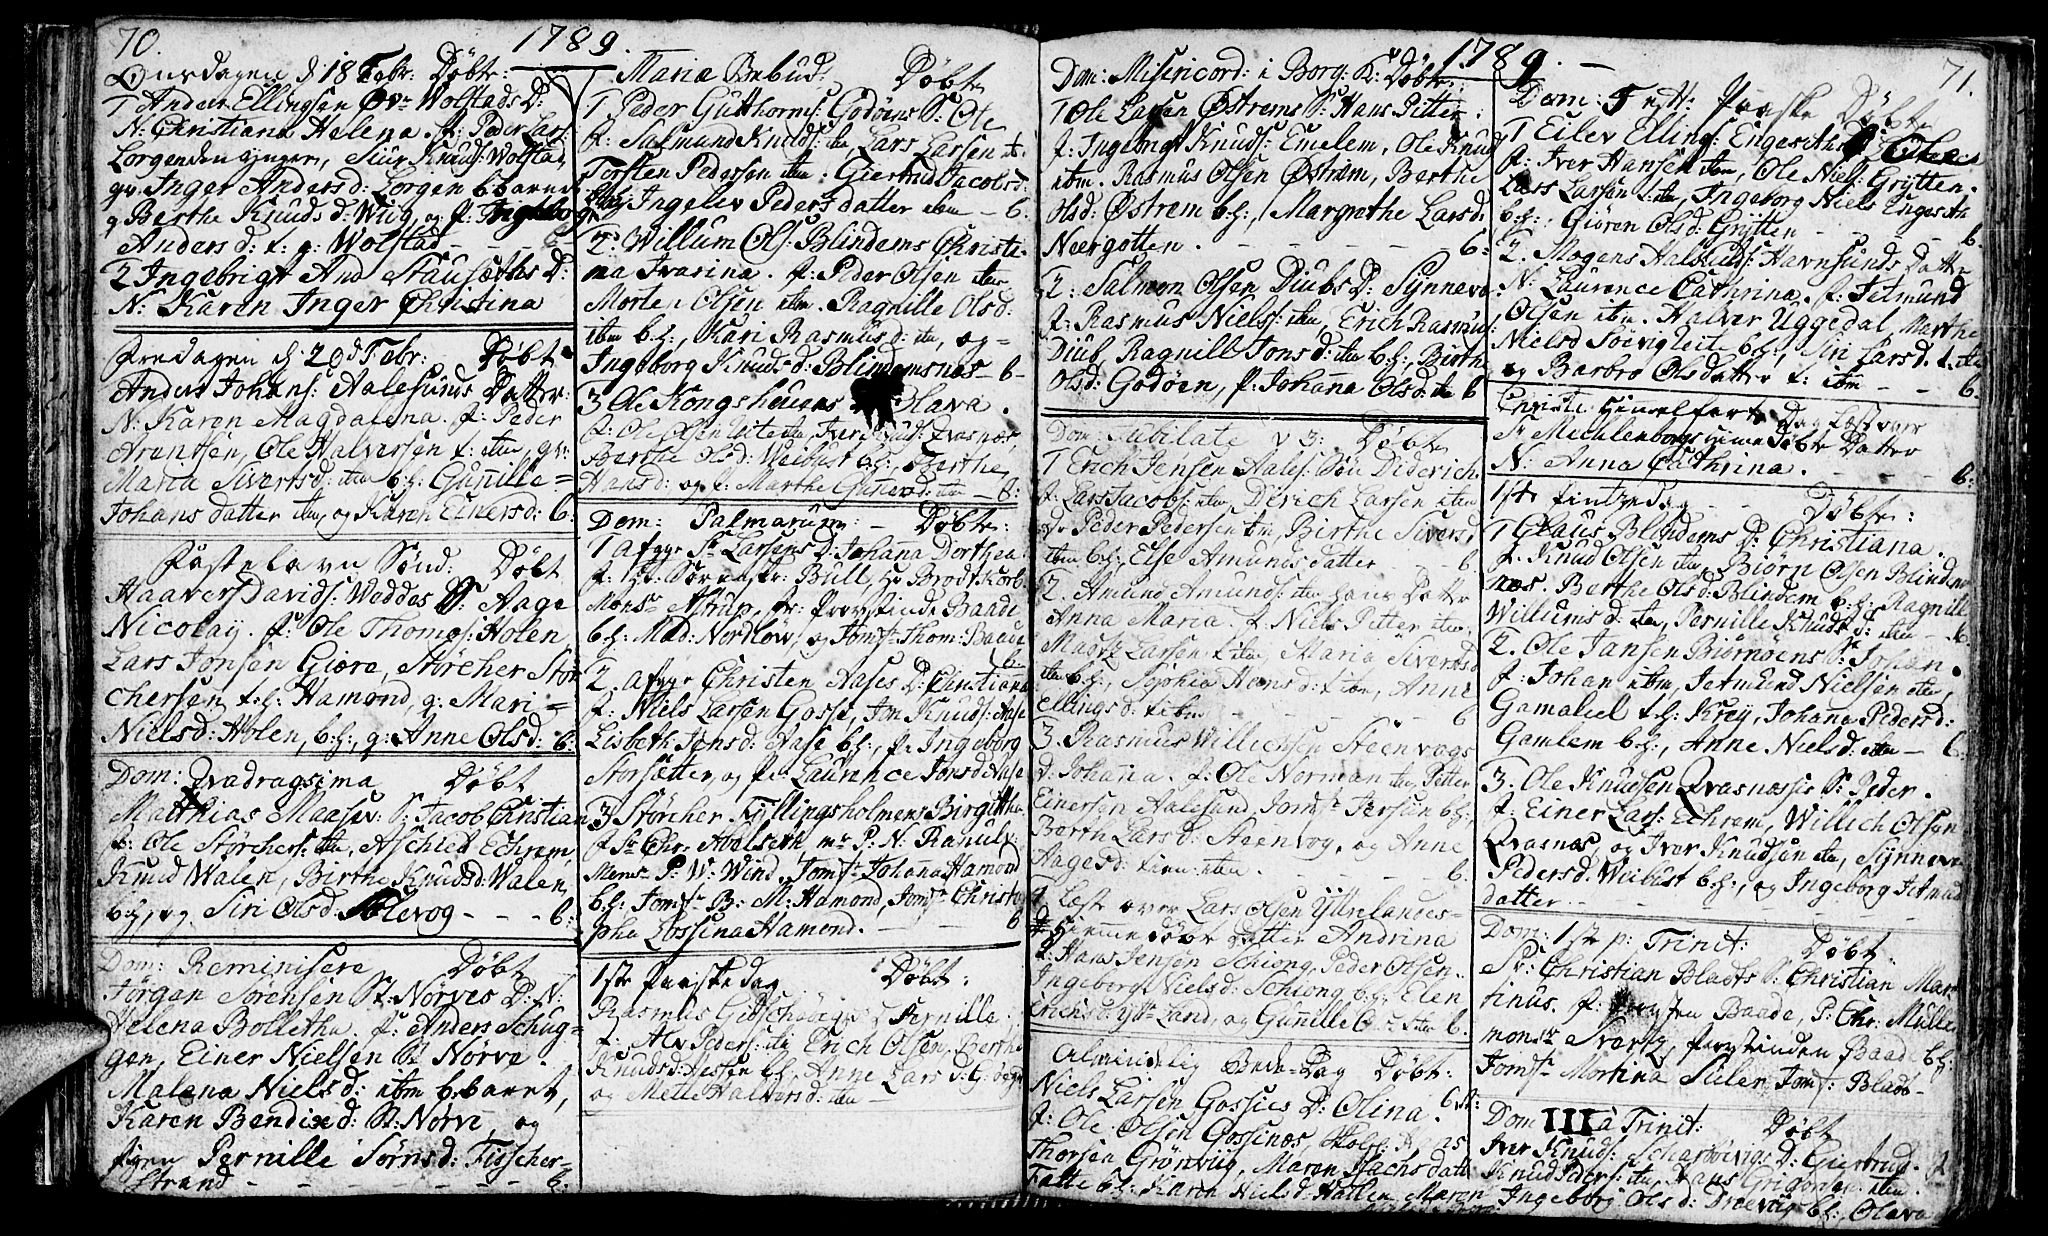 70.
1789.
Onsdagen d: 18 Febr: Døbt:
1 Anders Ellingsen Øvr Wolstads D:
N: Christiana Helena. f: Peder Lars:
Lorgen den yngere, Siur Knuds: Wolstad,
gv: Inger Anders d: Lorgen b. barnet
g Berthe Knuds d: Wiig, og p: Ingeborg
Anders d: t: g: Wolstad - - - - 6
2 Ingebrigt And Stausæths D:
N: Karen Inger Christina
Fredagen d: 20d Febr: Døbt
Anders Johans: Aalesunds Datter:
N: Karen Magdalena. f: Peder
Arentsen, Ole Halversen t: itm, gv:
Maria Siverts d: itm b.h: Gunille=
Johans datter itm, og Karen Einersd: 6.
Fastelavn Sønd: Døbt
Haavers Davids: Weddes S: Aage
Nicolay. f: Ole Thomas: Holen
Lars Jonsen Giøre, Størcher Stør
chersen t.h: Hamond, g: Mari=
Nielsd: Holen, b.h:, g: Anne Olsd: 6:
Dom: Qvadragsima Døbt
Matthias Maases: S: Jacob Christian
f: Ole Størchers: itm, Aschied Echrem,
Knud Walen, Birthe Knudsd: Walen
b.h:, og Siri Olsd Slevog - - - 6:
Dom: Reminisere Døbt
Jørgen Sørensen St: Nørves D: N:
Helena Bolletha. f: Anders Schug=
gen, Einer Nielsen St Nørve.
Malena Niels d: itm b: barnet,
Karen Bendixd: St: Norve, og
pigen Pernille Sørnsd: Fisscher=
Strand - - - - - - 6.
Mariæ Bebud: Døbt
1 Peder Gutthorms: Godøens S: Ole
f: Salmund Knuds: itm Lars Larsen it:
Torsten Pedersen itm. Giertrud Jacobsd:
b.h: Ingelev Peders datter itm - 6:
2. Willum Ols: Blindems Christi=
na Ivarina. f: Peder Olsen itm
Morten Olsen itm. Ragnille Olsd:
itm b.h:, Kari Rasmusd: itm, og=
Ingeborg Knuds d: Blindemsnæs - 6 -
3 Ole Kongshaugs Olava.
f: Ole Olsen itm, Iver Knuds: Qvasnæs
Berthe Olsd: Weibust b.h:, Berthe
Hansd: og t: Marthe Gunersd: itm - 6:
Dom: Palmarum - Døbt:
1 afgr Sr Larsens D: Johanna Dorthea
f: Hr Sørenstr: Bull, Hr Brodtkorb
Monsr Astrup, fr: Provstinde Baade
b.h: Mad: Nordlow, og Jomfr Thom: Baade
6
2. afgr Christen Aases D: Christianna
f: Niels Larsen Gosse, Jon Knuds: Aase
Lisbeth Jensd: Aase b.h:, p: Ingeborg
Storsætter, og p: Laurence Jonsd: Aase
3 Størcher Kyllingsholmens Birgitha
f Sr Chr: Aodseth mr P. N: Ranule
Monsr P: W: Wind, Jomfr Johanna Hamond
b.h: Jomfr B: M: Hamond, Jomfr Christo
pha Lossina Hamond. - - - 6
1ste Paaskedag Døbt:
Rasmus Giøschøiens D Pernille.
f: Alv Peders: itm Erich Olsen, Berthe
Knudsd: Hessen b.h:, Anne Lars d: G:
og Mette Halversd: itm -
1789. -
71.
Dom: Misericord: i Borg: K: Døbt.
1 Ole Larsen Østrems S: Hans Pitter:
f: Ingebrigt Knuds: Emelem, Ole Knud
ibm. Rasmus Olsen Østrem, Berthe
Olsd: Østrem b.h:, Margrethe Larsd:
Neergotten. - - - - - - 6:
2: Salmon Olsen Diubs D: Synneve
f: Rasmus Niels: itm, Erich Rasmus:
Diub, Ragnill Jons d: itm b.h:, Birth
Olsd: Godøen, p: Johanna Olsd: itm 6
Dom: Jubilate d 3: Døbt
1 Erich Jensen Aales: Søn Diderich
f: Lars Jacobs: itm, Dirich Larsen itm
Peder Pedersen itm, Birthe Sivers d
itm b.h: Else Amunds datter - - 6
2. Amund Amunds: itm hans Datter
Anna Maria. f Niels Pitter itm,
Maars Larsen t: itm, Maria Sivertsd
itm b.h:, Sophia Hans d: t: itm, Anne
Ellings d: t: ibm - - - - - 6
3. Rasmus Willichsen Steenvogs
D: Johanna. f: Ole Norman itm Pitter
Einersen Aalesund, Jomfr Jersen b.h:
Berth Lars d: Steenvog, og Anne
Aagesd: itm. - - - - 6.
4 Læst over Lars Olsen Yttrelandes=
Hiemmedøbt datter Andrina
f: Hans Jensen Schiong, Peder Olsen.
Ingeborg Niels d: Schiong b.h: Elen
Erichsd: Ytterland, og Gunille Ols: itm 6.
Almindelig Bede=Dag Døbt:
Niels Larsen Gossies D: Olina. 6 st:
f: Ole Olsen Gossinæs, Hans
Thorsen Grønviig, Maren Isachs datt
Tatte b.h: Karen Niels d: Hatlen, Maren
Dom: 1ste p: Paaske Døbte
1 Eilev Elling: Engeseth
f: Iver Hansen itm, Ole Niels: Grytten.
Lars Larsen t: itm, Ingeborg Niels Engeseth
b.h:, Giøren Olsd: Grytten - - - - 6.
2. Mogens Halsteds: Havnsunds Datter
N: Laurence Cathrina. f: Jetmund
Olsen itm. Halver Uggedal, Marthe
Nielsd Søevigleite b.h:, Siri Larsd. t: itm
og Barbro Olsdatter t: itm - - 6.
Christi Himmelfarts Dag Læst over
Sr Mechlenborgs Hiemmedøbte Datter
N: Anna Cathrina. - - - - 6:
1ste Pintzedag - - Døbt:
1 Claus Blindems D: Christiana.
f. Knud Olsen itm, Biørn Olsen Blindem
næs. Berthe Olsd: Blindem b.h: Ragnille
Willums d: itm, Pernille Knuds d: itm - 6.
2. Ole Jansen Biørnøens S: Johan.
f: Johan ibm, Jetmund Nielsen itm,
Gamaliel t.h: Krey, Johana Pedersd:
Gamlem b.h:, Anne Nielsd: itm - 6:
3. Ole Knudsen Qvasnæssis S: Peder.
f: Einer Lars: Echrem, Willich Olsen
Qvasnæs, og Iver Knudsen itm, Synneve
Pedersd. Weibust b.h:, og Ingeborg Jetmund
datter. - - - - - - - -
Dom: 1ste p: Trinit: Døbt.
Sr: Christian Bladts S: Christian Mar=
tinus. f: Provsten Baade, P: Chr: Mülle
monsr Svertz, Provstinden Baade b.h:
Jomfr Mortina Sielen Jomf: Bladt -
Dom III à Trinit: Døbt
Iver Knuds: Scharbøvigs D: Giertrud.
Knud Peders: itm, Hans Grigorsen itm.
Ingeborg Ols d: Drævog b.h:, Olava